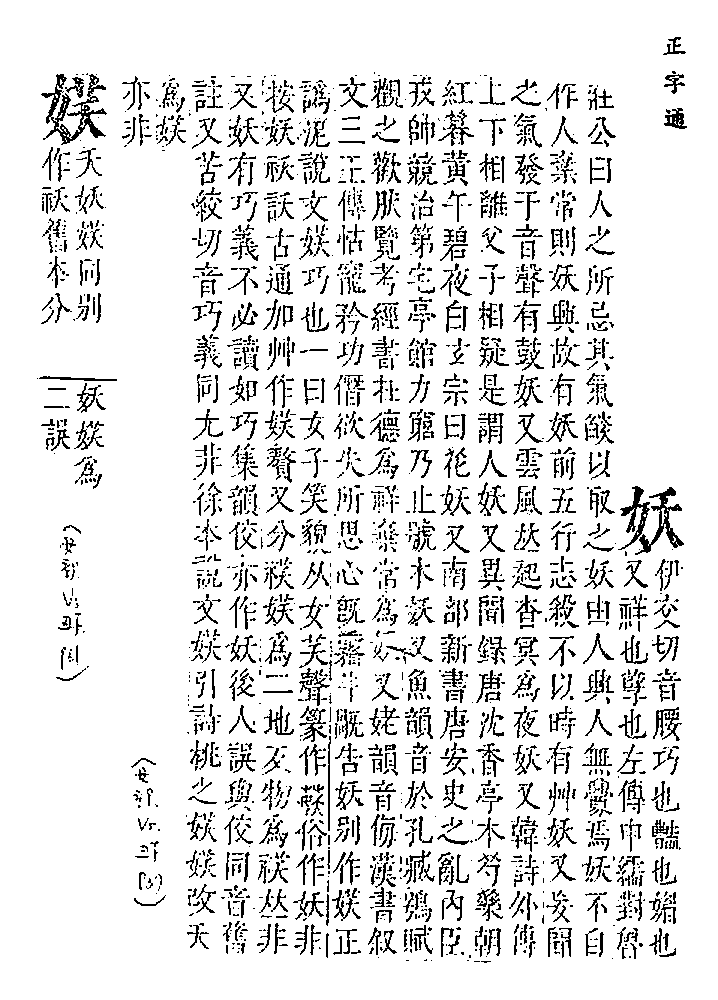 正字通
妖
伊交切音腰巧也豔也媚也
又祥也孽也左傳申繻對魯
莊公曰人之所忌其氣燄以取之妖由人興人無釁焉妖不自
作人棄常則妖興故有妖前五行志殺不以時有艸妖又聞
之氣發于音聲有鼓妖又雲風並起杳冥為夜妖又韓詩外傳
上下相離父子相疑是謂人妖又異聞錄唐沈香亭木芍藥朝
紅暮黃午碧夜白玄宗曰花妖又南部新書唐安史之亂內臣
戎帥競治第宅亭館力窮乃止號木妖又魚韻音於孔臧鴞賦
觀之歡肰覽考經書在德為祥棄常為妖又姥韻音漢書叙
文三正傳怙寵矜功僭欲失所思心旣霿牛旤告妖別作𡝩正
譌泥說文𡝩巧也一曰女子笑貌从女芺聲篆作俗作妖非
按妖祅訞古通加艸作𡝩贅又分䄏𡝩為二地反物為䄏並非
又妖有巧義不必讀如巧集韻佼亦作妖後人誤與佼同音舊
註又苦絞切音巧義同尤非徐本說文𡝩引詩桃之𡝩𡝩改夭
為𡝩
亦非
𡝩
夭妖𡝩同別
作祅舊本分
妖𡝩為
二誤